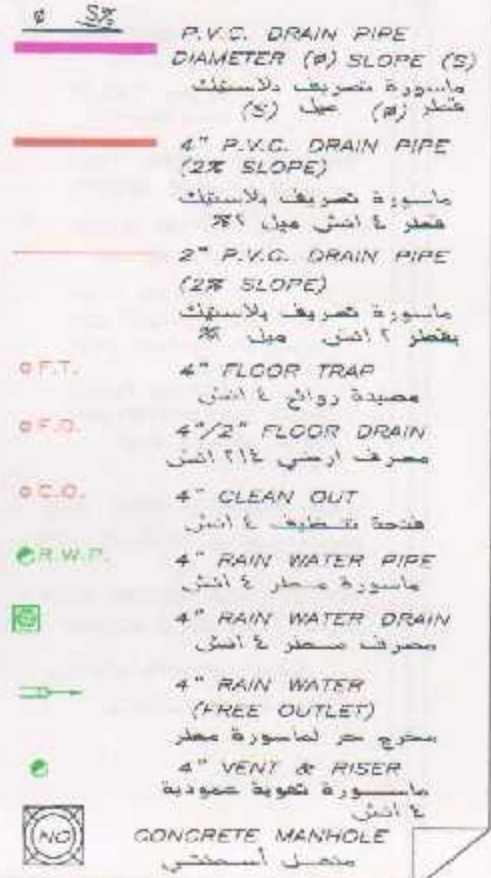 ø S%
P.V.C. DRAIN PIPE
DIAMETER (ø) SLOPE (S)
ماسورة تصريف بلاستيك
قطر (ø) ميل (S)
4" P.V.C. DRAIN PIPE
(2% SLOPE)
ماسورة تصريف بلاستيك
قطر ٤ انش ميل ٢%
2" P.V.C. DRAIN PIPE
(2% SLOPE)
ماسورة تصريف بلاستيك
بقطر ٢ انش ميل ٢%
F.T. 4" FLOOR TRAP
مصيدة روائح ٤ انش
F.D. 4"/2" FLOOR DRAIN
مصرف ارضي ٢\٤ انش
C.O. 4" CLEAN OUT
فتحة تنظيف ٤ انش
R.W.P. 4" RAIN WATER PIPE
ماسورة مطر ٤ انش
4" RAIN WATER DRAIN
مصرف مطر ٤ انش
4" RAIN WATER
(FREE OUTLET)
مخرج حر لماسورة مطر
4" VENT & RISER
ماسورة تهوية عمودية
٤ انش
NO CONCRETE MANHOLE
منهل أسمنتي